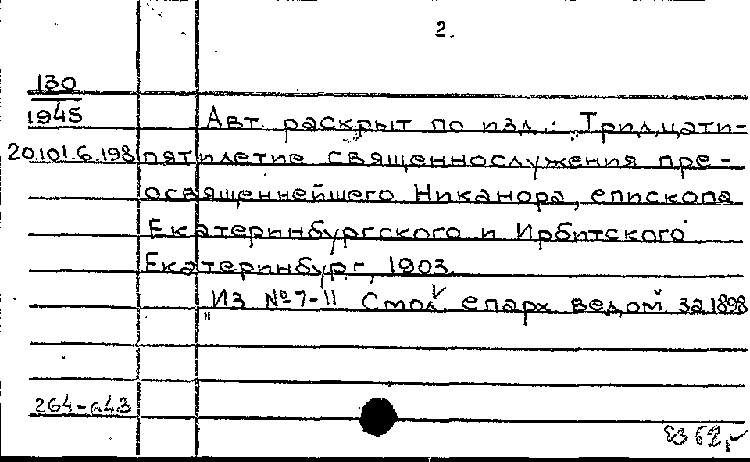 2.
130
1945
Авт. раскрыт по изд.: Тридцати-
20.101.6.198 пятилетие священнослужения пре-
освященнейшего Никанора, епископа
Екатеринбургского и Ирбитского
Екатеринбург, 1903.
"Из № 7-11 Смол епарх ведом за 1898
264-643